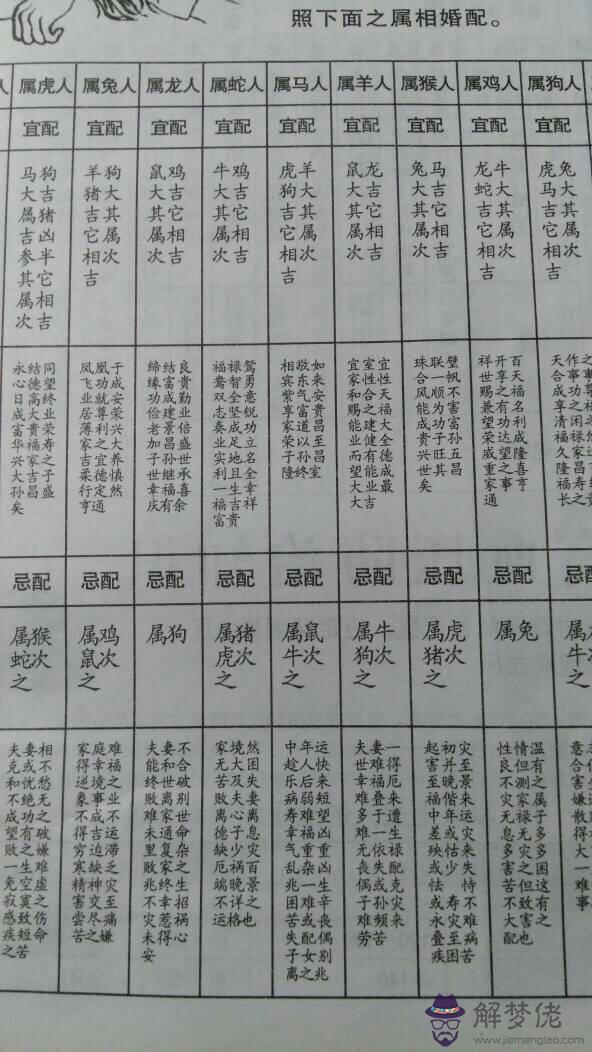 照下面之属相婚配。
属虎人 属兔人 属龙人 属蛇人 属马人 属羊人 属猴人 属鸡人 属狗人
宜配 宜配 宜配 宜配 宜配 宜配 宜配 宜配 宜配
马狗大吉属猪吉凶参半其它属相次吉
羊狗猪大吉其它属相次吉
鼠鸡大吉其它属相次吉
牛鸡大吉其它属相次吉
虎羊狗大吉其它属相次吉
鼠龙大吉其它属相次吉
兔马大吉其它属相次吉
龙牛蛇大吉其它属相次吉
虎兔马大吉其它属相次吉
永结同心德望日高终成大业富贵荣华福寿兴家之大吉子孙昌盛矣
凤凰于飞功成业就安居尊荣薄利兴家之大吉宜养柔德慎行定然亨通
缔结良缘富贵功成勤俭建业老景倍加昌盛子孙世世继承幸福喜庆有余
福禄鸳鸯智勇双全意志坚锐奏成功业足立实地名利且全一生幸福吉祥富贵
相敬如宾东来紫气安享富贵家道昌子以至孙昌隆终室
宜室宜家性性和合天赐之福能建大业健全而有德望能成大业最大吉
珠联璧合一帆风顺不能为害成功富贵子孙兴旺五世其昌矣
祥开百世享天赐之福兼有名望功利荣达成威望隆重之喜家事亨通
天作之合事事成功
忌配 忌配 忌配 忌配 忌配 忌配 忌配 忌配
属猴蛇次之
属鸡鼠次之
属狗
属猪虎次之
属鼠牛次之
属牛狗次之
属虎猪次之
属兔
牛次之
夫妻相克或不和忧愁不绝无成功之望有破败之嫌一生难免空虚寂寞之伤感短命疾苦之
家庭难得幸福逆境之象事业不成不得吉运穷迫滞寒缺乏精神灾害交至苦尽痛之嫌
夫妻不能和合终世破败离别难家世未通命里复杂败家之兆终生不幸招灾惹祸未得苦心安
家境然无大困苦及失败夫妻离心离德子息缺少灾厄祸百端晚景不详之运格也
中年运趁人快乐后来病弱短寿难望幸福凶气重重
夫妻一世难得幸福厄多叠来难于遭
起初灾害并至至晚景福偕来中年运
性情温良但有不测之灾家属无禄多息灾多
解梦佬
www.jiemenglao.com